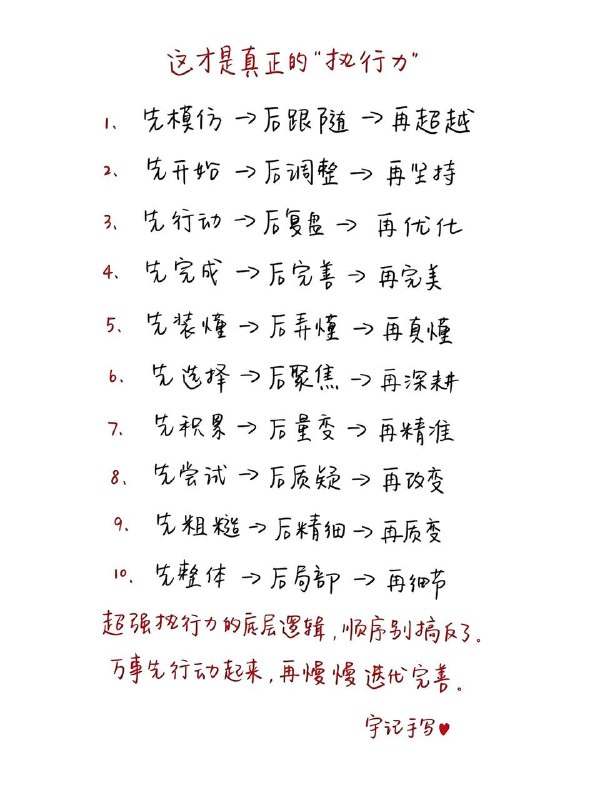 这才是真正的“执行力”
1、先模仿→后跟随→再超越
2、先开始→后调整→再坚持
3、先行动→后复盘→再优化
4、先完成→后完善→再完美
5、先装懂→后弄懂→再真懂
6、先选择→后聚焦→再深耕
7、先积累→后量变→再精准
8、先尝试→后质疑→再改变
9、先粗糙→后精细→再质变
10、先整体→后局部→再细节
超强执行力的底层逻辑,顺序别搞反了。
万事先行动起来,再慢慢迭代完善。
宇记手写♥